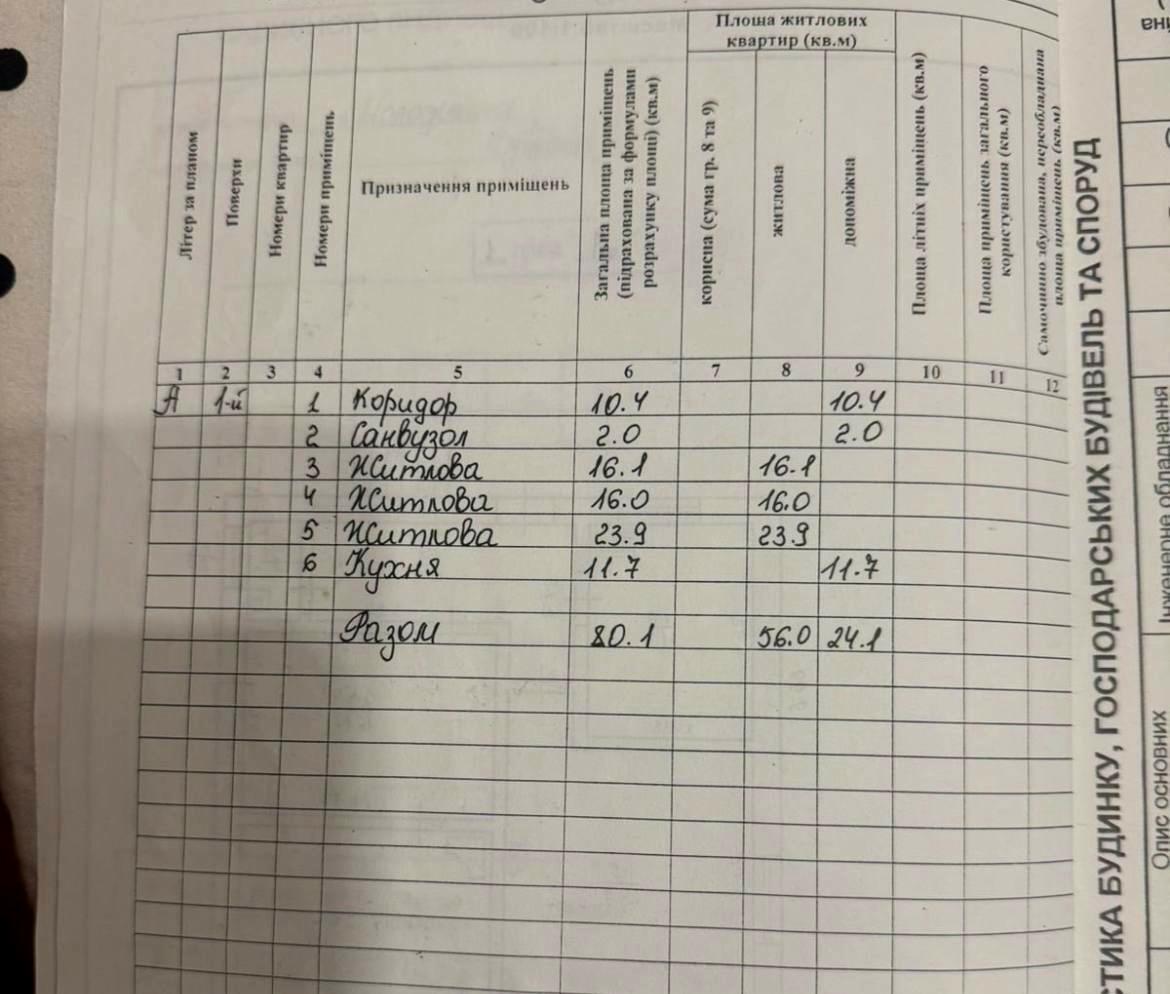 Площа житлових
квартир (кв.м)
Літер за планом
Поверхи
Номери квартир
Номери приміщень
Призначення приміщень
Загальна площа приміщень
(підрахована за формулами
розрахунку площі) (кв.м)
корисна (сума гр. 8 та 9)
житлова
допоміжна
Площа літніх приміщень (кв.м)
Площа приміщень загального
користування (кв.м)
Самочинно збудована, переобладнана
площа приміщень (кв.м)
1 2 3 4 5 6 7 8 9 10 11 12
А 1-й 1 Коридор 10.4 10.4
2 Санвузол 2.0 2.0
3 Житлова 16.1 16.1
4 Житлова 16.0 16.0
5 Житлова 23.9 23.9
6 Кухня 11.7 11.7
Разом 80.1 56.0 24.1
СТИКА БУДИНКУ, ГОСПОДАРСЬКИХ БУДІВЕЛЬ ТА СПОРУД
Інженерне обладнання
Опис основних